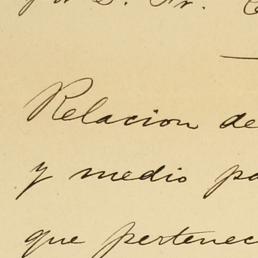 por D. Fr. C
Relacion de
y medio po
que pertenec